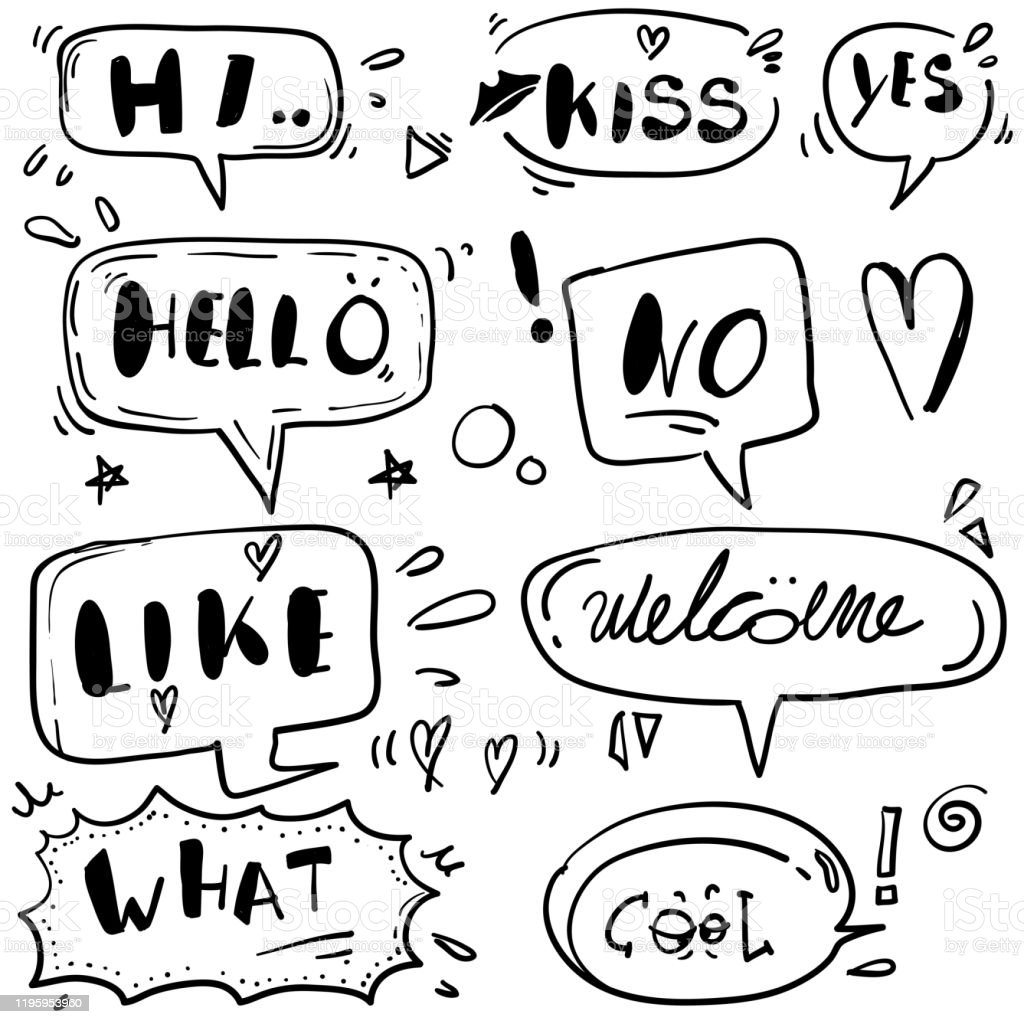 HI..
KISS
YES
HELLÖ
NO
LIKE
welcöme
WHAT
COOL
iStock
by Getty Images™
1195953960